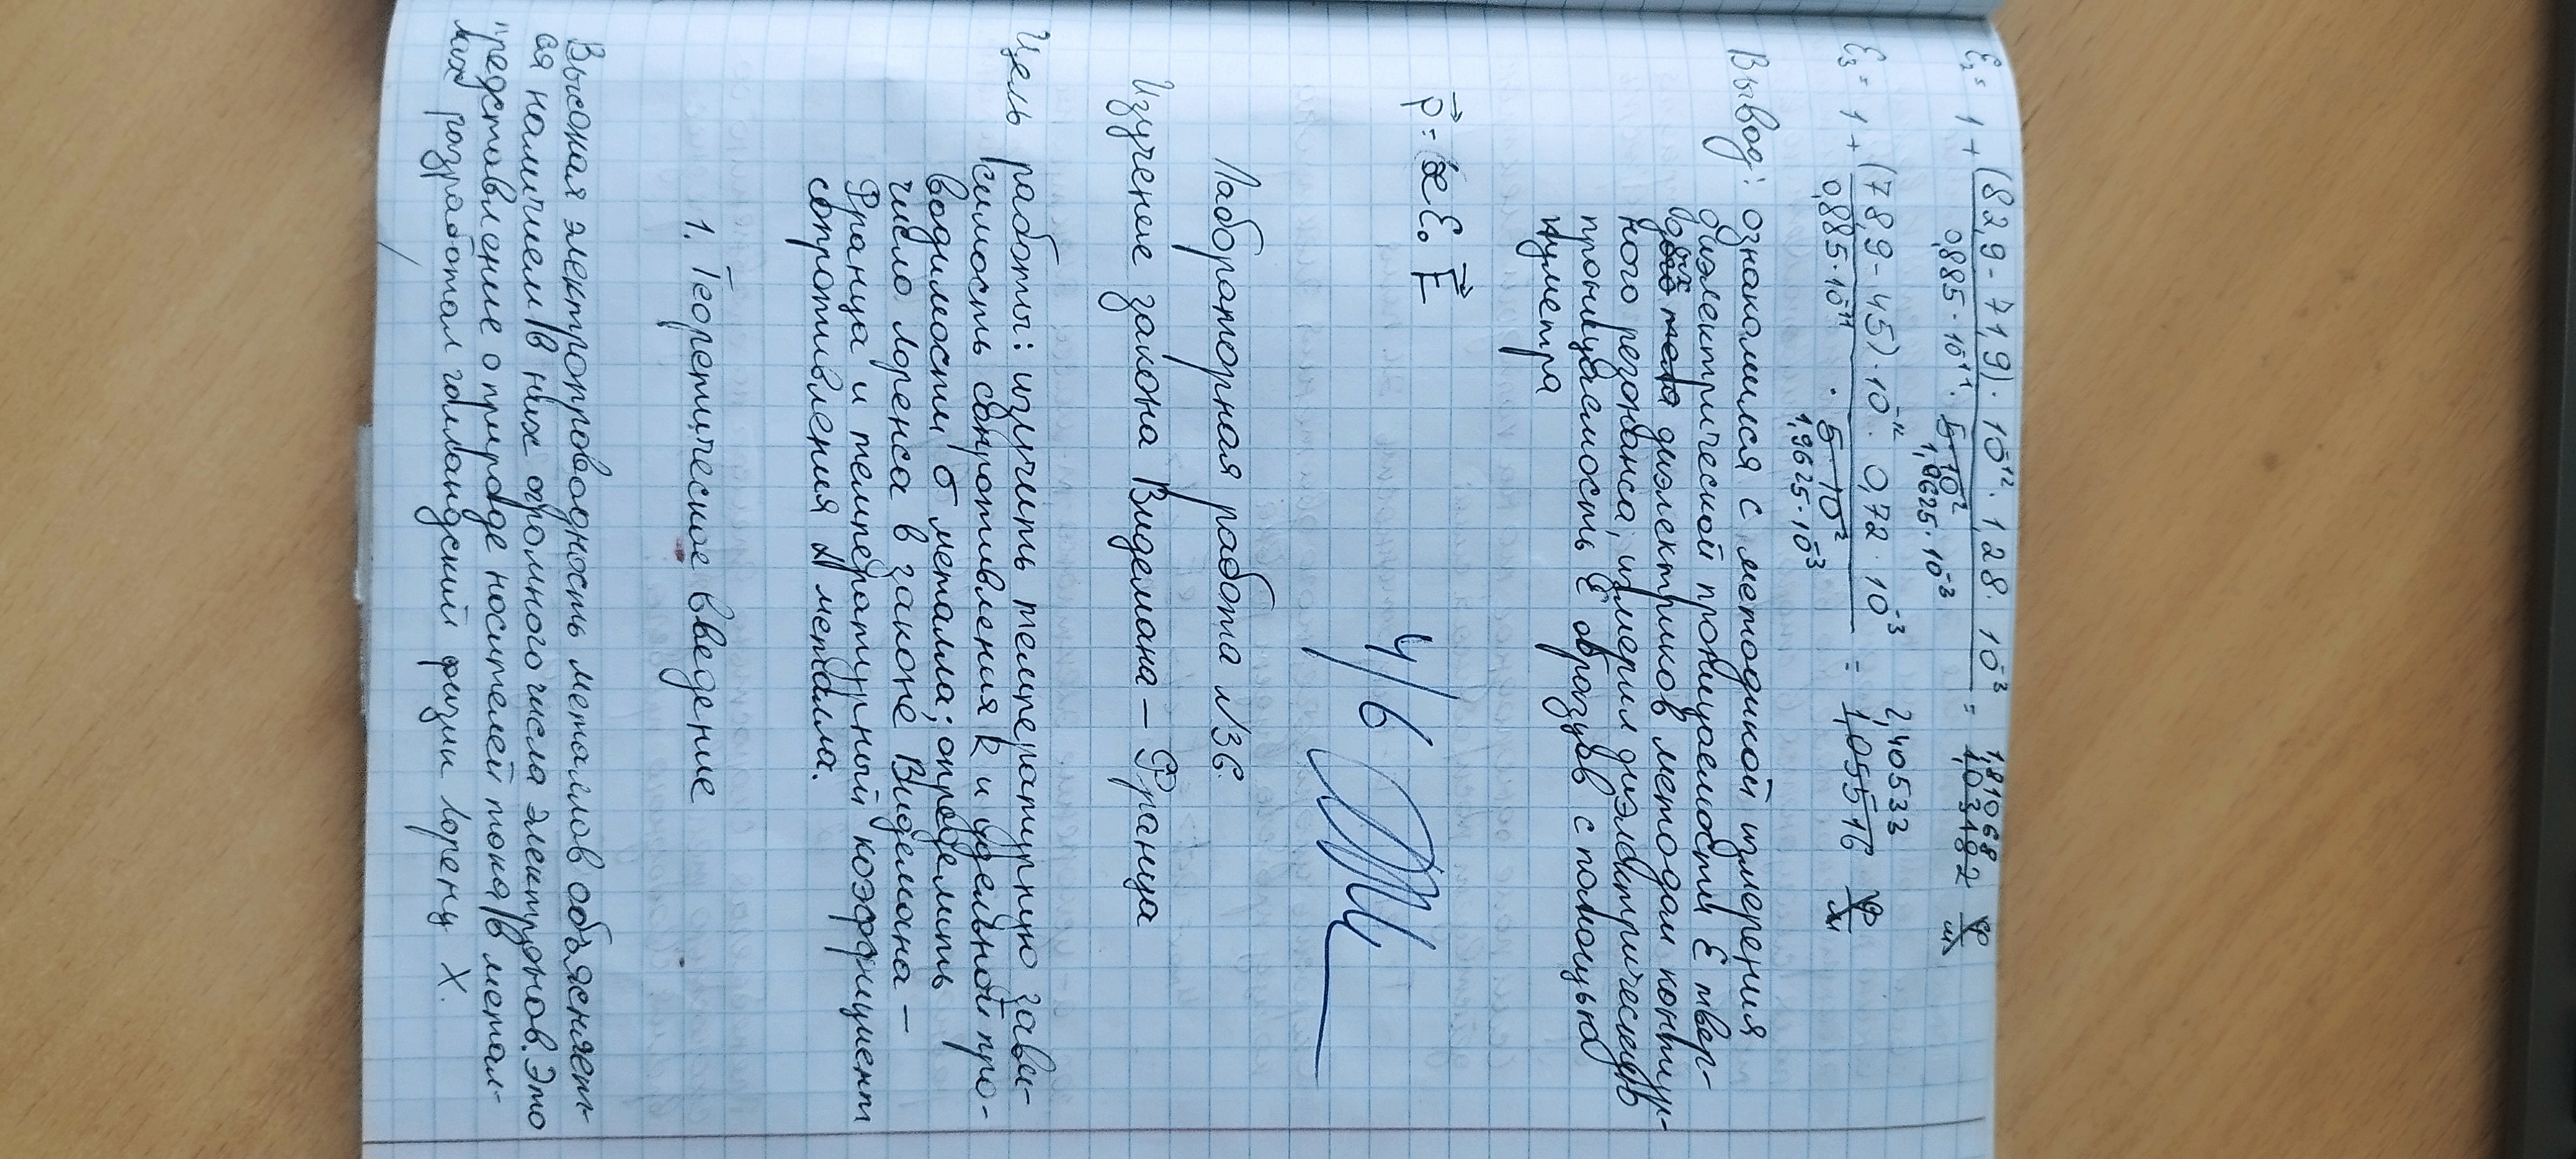 ε₂ = 1 + (82,9 - 71,9) · 10⁻¹² · 1,28 · 10⁻³ / 0,885 · 10⁻¹¹ · 5·10² 1,9625 · 10⁻³ = 1,03182 1,81068 Ф/м
ε₃ = 1 + (78,9 - 45) · 10⁻¹² · 0,72 · 10⁻³ / 0,885 · 10⁻¹¹ · 5·10² 1,9625 · 10⁻³ = 1,05516 2,40533 Ф/м
Вывод: ознакомился с методикой измерения
диэлектрической проницаемости ε твёр-
дых диэлектриков методом контур-
ного резонанса, измерил диэлектрическую
проницаемость ε образцов с помощью
куметра
p⃗ = æ ε₀ E⃗
4/6
Лабораторная работа №36.
Изучение закона Видемана – Франца
Цель работы: изучить температурную зави-
симость сопротивления R и удельной про-
водимости σ металла; определить
число Лоренса в законе Видемана –
Франца и температурный коэффициент
сопротивления α металла.
1. Теоретическое введение
Высокая электропроводность металлов объясняет-
ся наличием в них огромного числа электронов. Это
представление о природе носителей тока в метал-
лах разработал голландский физик Лоренц Х.